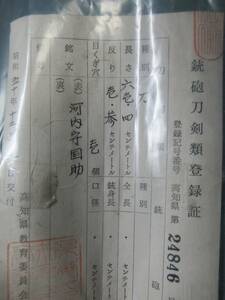 銃砲刀剣類登録証
登録記号番号 高知県 第 24846 号
種別 刀
長さ 六壱・四 センチメートル
反り 壱・参 センチメートル
目くぎ穴 壱 個
銘文 (表) 河内守国助
(裏)
銃砲
種別
全長
銃身長
口径
高知県教育委員会
交付